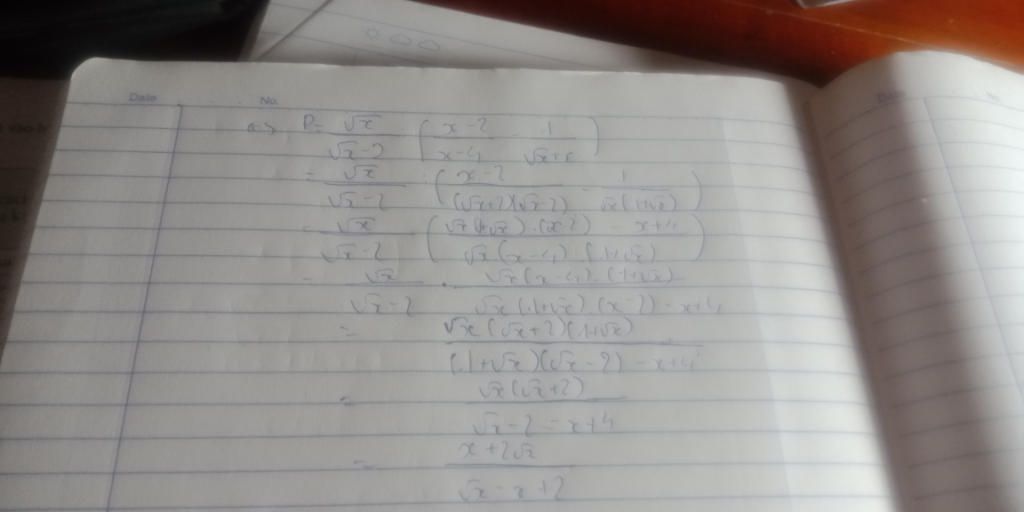 Date No.
P = √x / (√x-2) : ( (x-2)/(x-4) - 1/(√x+x) )
= √x / (√x-2) : ( (x-2)/((√x+2)(√x-2)) - 1/(√x(1+√x)) )
= √x / (√x-2) : ( (√x(1+√x).(x-2) - x+4) / (√x(x-4).(1+√x)) )
= √x / (√x-2) . (√x(x-4).(1+√x)) / (√x(1+√x).(x-2)-x+4)
= (√x(√x+2)(1+√x)) / ((1+√x)(√x-2)-x+4)
= (√x(√x+2)) / (√x-2-x+4)
= (x+2√x) / (√x-x+2)